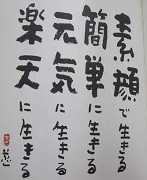 素顔で生きる
簡単に生きる
元気に生きる
楽天に生きる